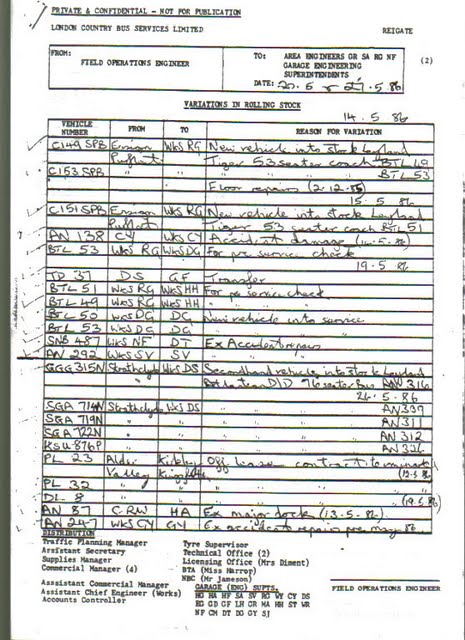 PRIVATE & CONFIDENTIAL - NOT FOR PUBLICATION
LONDON COUNTRY BUS SERVICES LIMITED REIGATE
FROM: FIELD OPERATIONS ENGINEER TO: AREA ENGINEERS GR SA RG NF (2)
GARAGE ENGINEERING
SUPERINTENDENTS
DATE: 20.5 & 27.5.86
VARIATIONS IN ROLLING STOCK
14.5.86
VEHICLE NUMBER FROM TO REASON FOR VARIATION
C149 SPB Ensign WKS RG New vehicle into stock Leyland
Purfleet Tiger 53 seater coach BTL 49
C153 SPB " " " BTL 53
Floor repairs (2.12.85)
15.5.86
C151 SPB Ensign WKS RG New vehicle into stock Leyland
Purfleet Tiger 53 seater coach BTL 51
AN 138 CY WKS CY Accident damage
BTL 53 WKS RG WKS DG For pre service check
19.5.86
TD 37 DS GF Transfer
BTL 51 WKS RG WKS HH For pre service check
BTL 49 WKS RG WKS HH "
BTL 50 WKS DG DG New vehicle into service
BTL 53 WKS DG DG " "
SNB 487 WKS NF DT Ex Accident repairs
AN 292 WKS SV SV " "
GGG 315N Strathclyde WKS DS Secondhand vehicle into stock Leyland
Atlantean D/D 76 seater Bus AN 316
26.5.86
SGA 714N Strathclyde WKS DS " " AN 309
SGA 719N " " " " AN 311
SGA 722N " " " " AN 312
KSU 876P " " " " AN 326
PL 23 Alder Kirkby Off lease contract terminated
Valley
PL 32 " " "
DL 8 " " " (19.5.86)
AN 87 CRW HA Ex major dock (13.5.86)
AN 247 WKS GY GY Ex accident repair pre may 86
DISTRIBUTION
Traffic Planning Manager Tyre Supervisor
Assistant Secretary Technical Office (2)
Supplies Manager Licensing Office (Mrs Diment)
Commercial Manager (4) BTA (Miss Harrop)
NBC (Mr Jameson)
Assistant Commercial Manager GARAGE (ENG) SUPTS.
Assistant Chief Engineer (Works) HG HA HF SA SV RG WY CY DS FIELD OPERATIONS ENGINEER
Accounts Controller EG GD GF LH GR MA HH ST WR
NF CM DT DG GY SJ